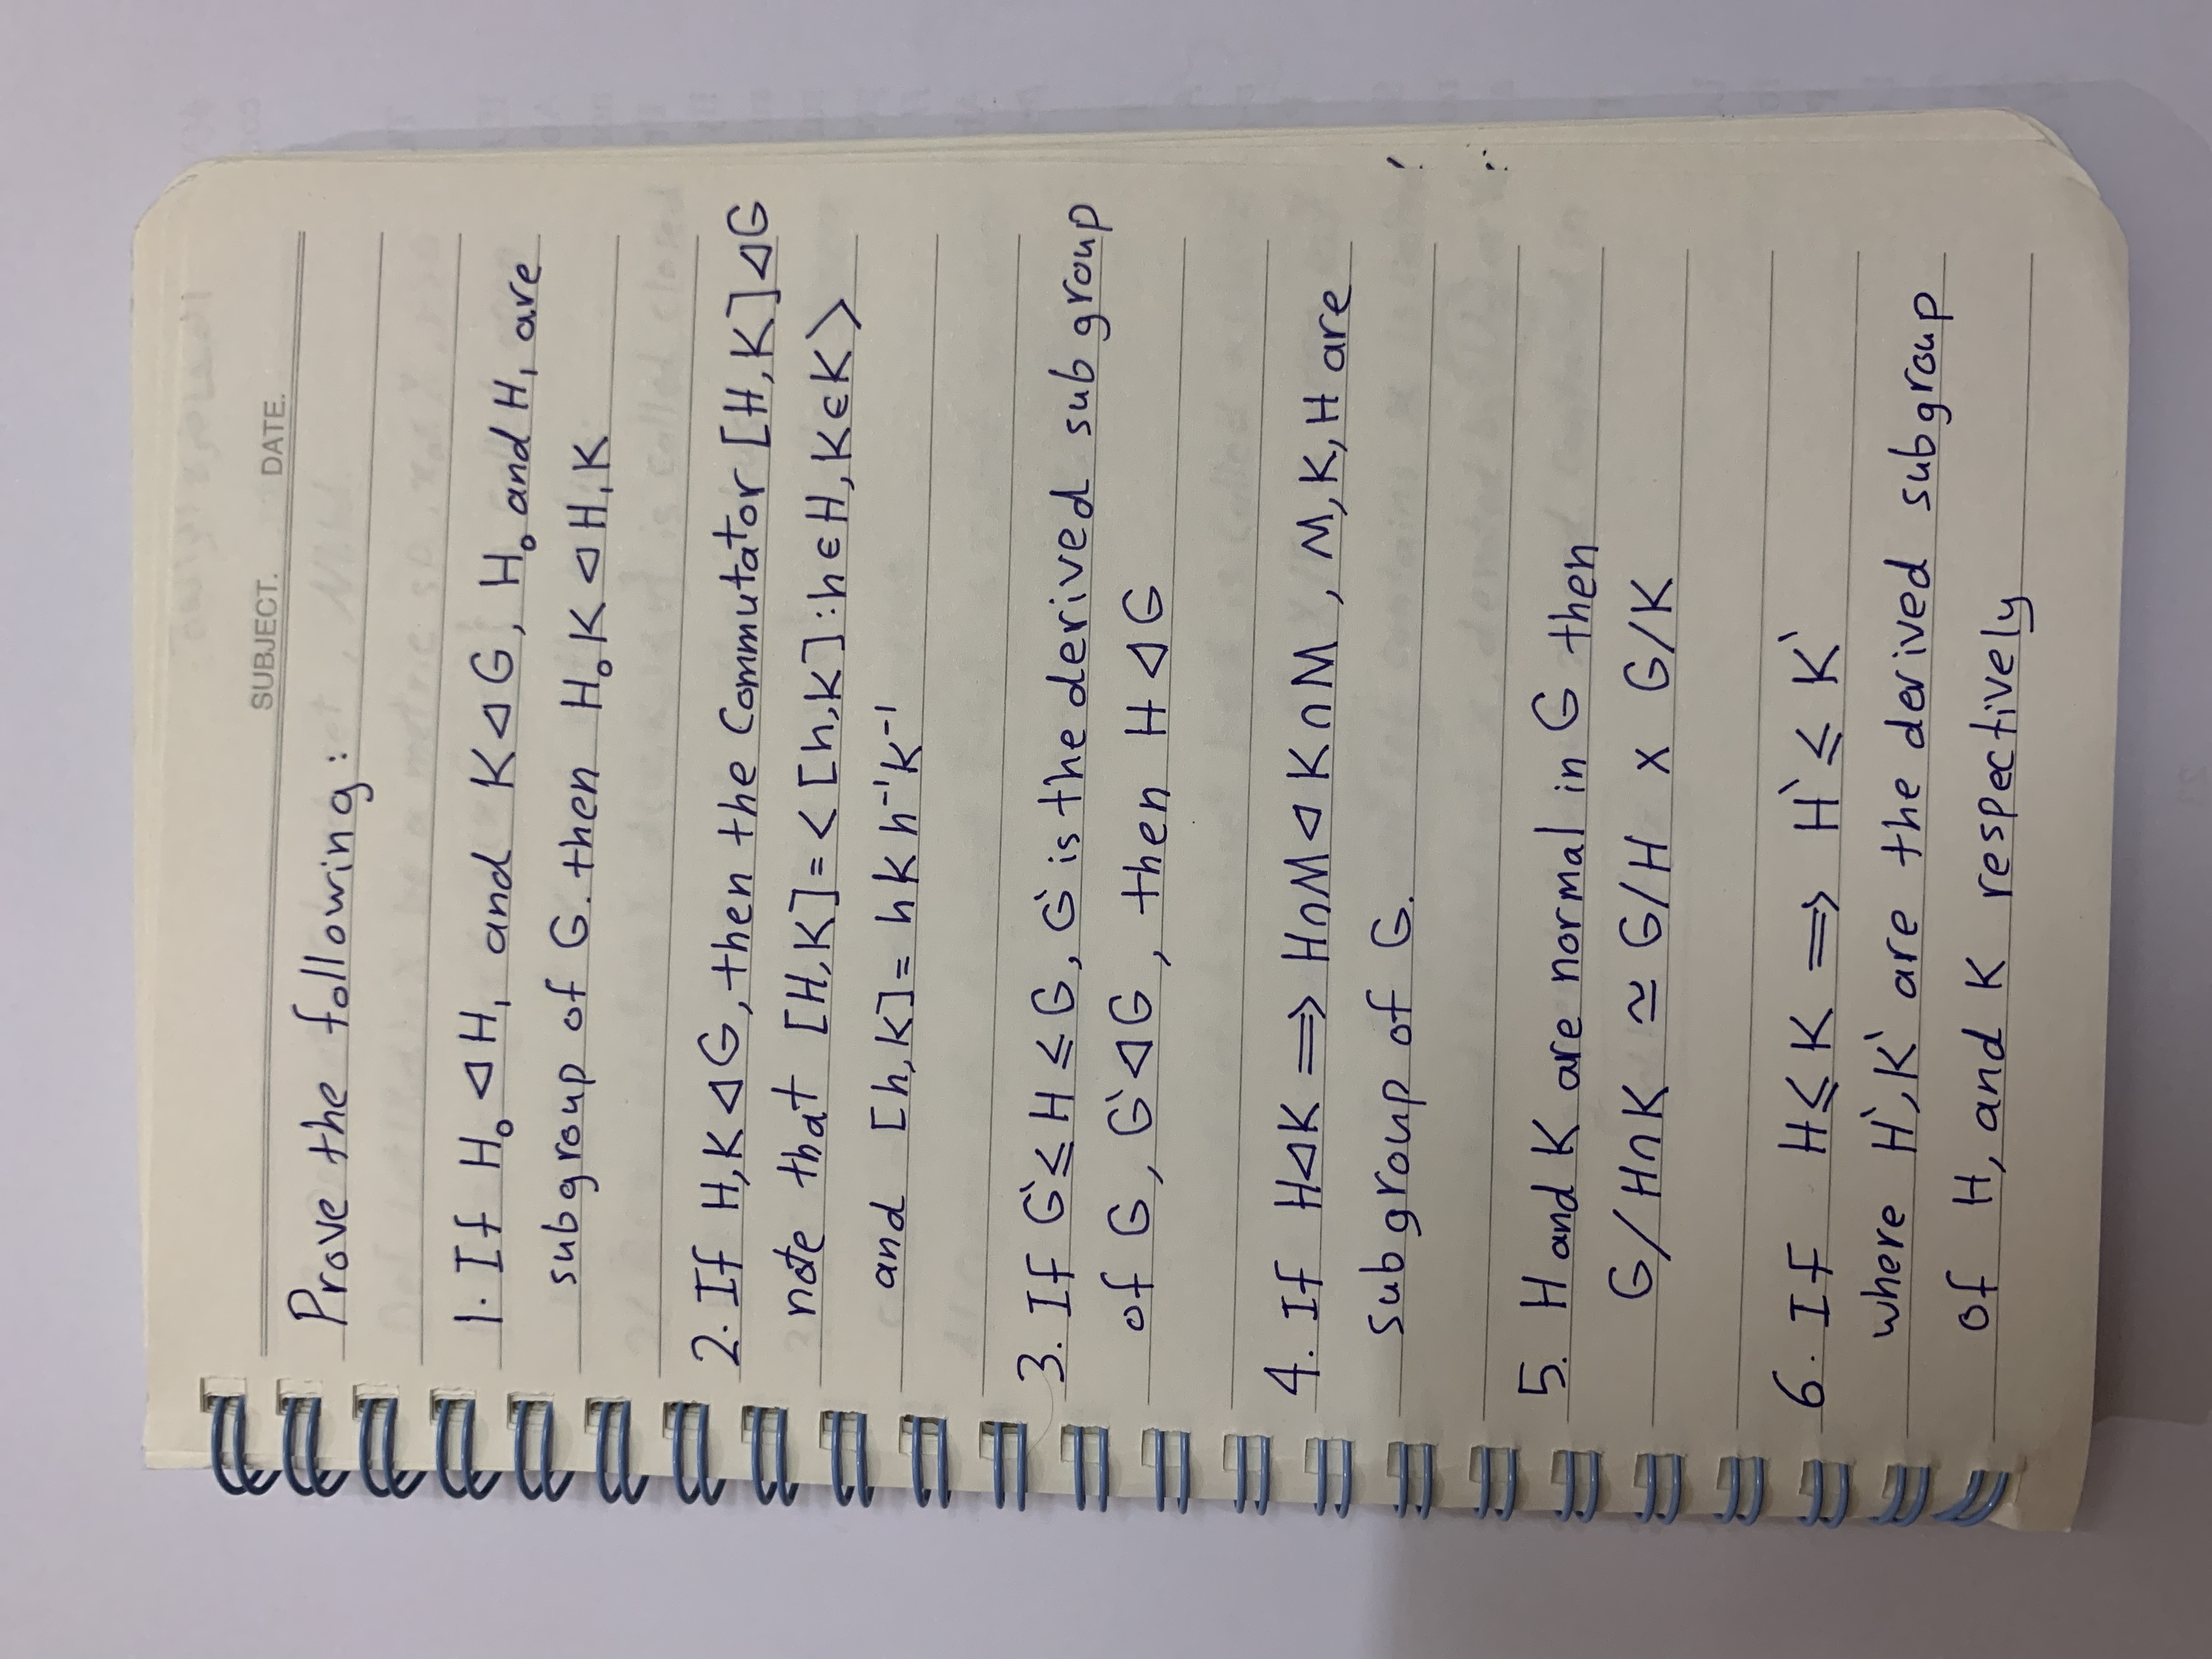 SUBJECT. DATE.
Prove the following:
1. If H₀ ⊲ H₁ and K ⊲ G, H₀ and H₁ are
subgroup of G. then H₀K ⊲ H₁K
2. If H,K ⊲ G, then the Commutator [H,K] ⊲ G
note that [H,K] = < [h,K] : h ∈ H, K ∈ K >
and [h,K] = h K h⁻¹ K⁻¹
3. If G' ≤ H ≤ G, G' is the derived subgroup
of G, G' ⊲ G, then H ⊲ G
4. If H ⊲ K ⟹ H∩M ⊲ K∩M, M,K,H are
subgroup of G.
5. H and K are normal in G then
G/H∩K ≃ G/H × G/K
6. If H ≤ K ⟹ H' ≤ K'
where H',K' are the derived subgroup
of H, and K respectively